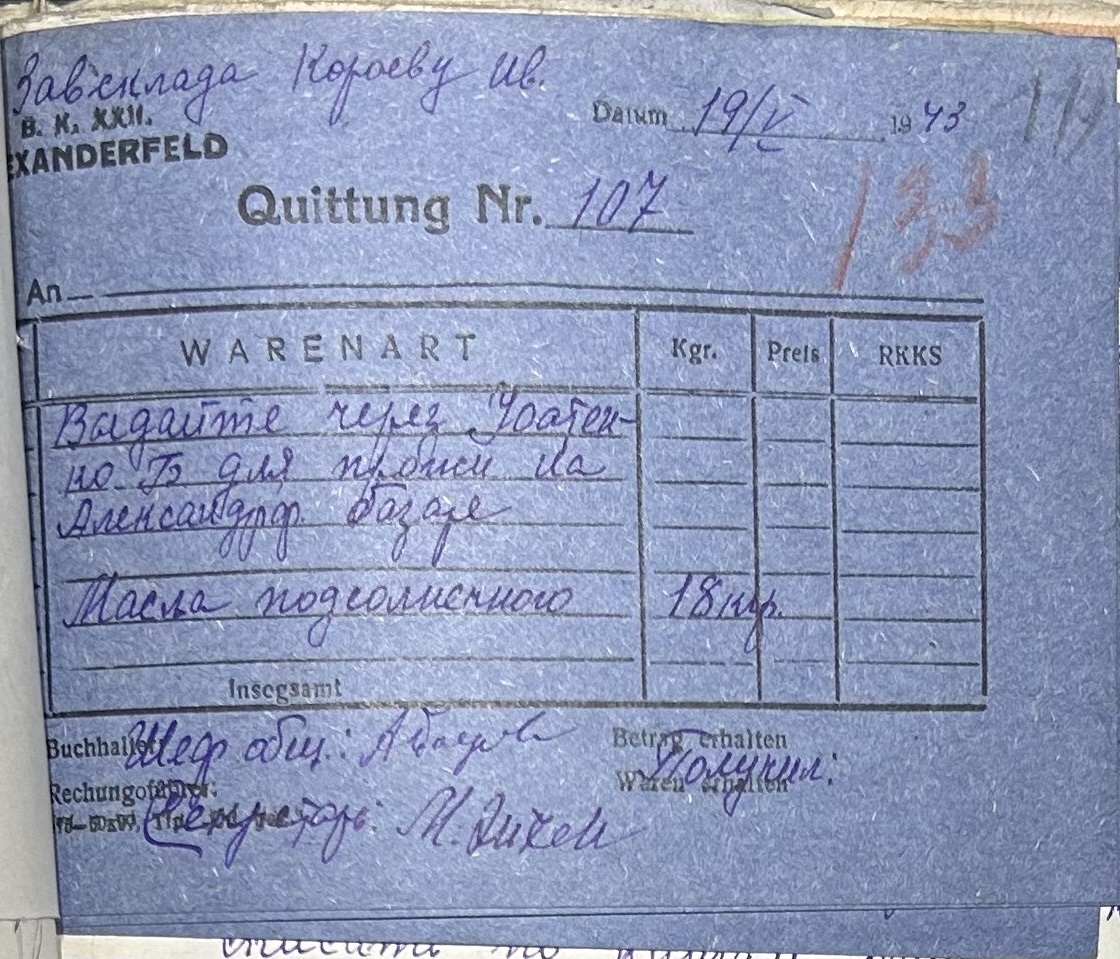 Зав.склада Короеву Ив.
B. K. XXII.
EXANDERFELD
Datum 19/V 1943
119
133
Quittung Nr. 107
An
WARENART Kgr. Preis RKKS
Видайте через
но для на
Александрф. базаре
Масла подсолнечного 18 кгр.
Insegsamt
Buchhalter Шеф общ.:
Betrag erhalten
Получил:
Waren erhalten
Rechungsführer:
Секретарь: М.